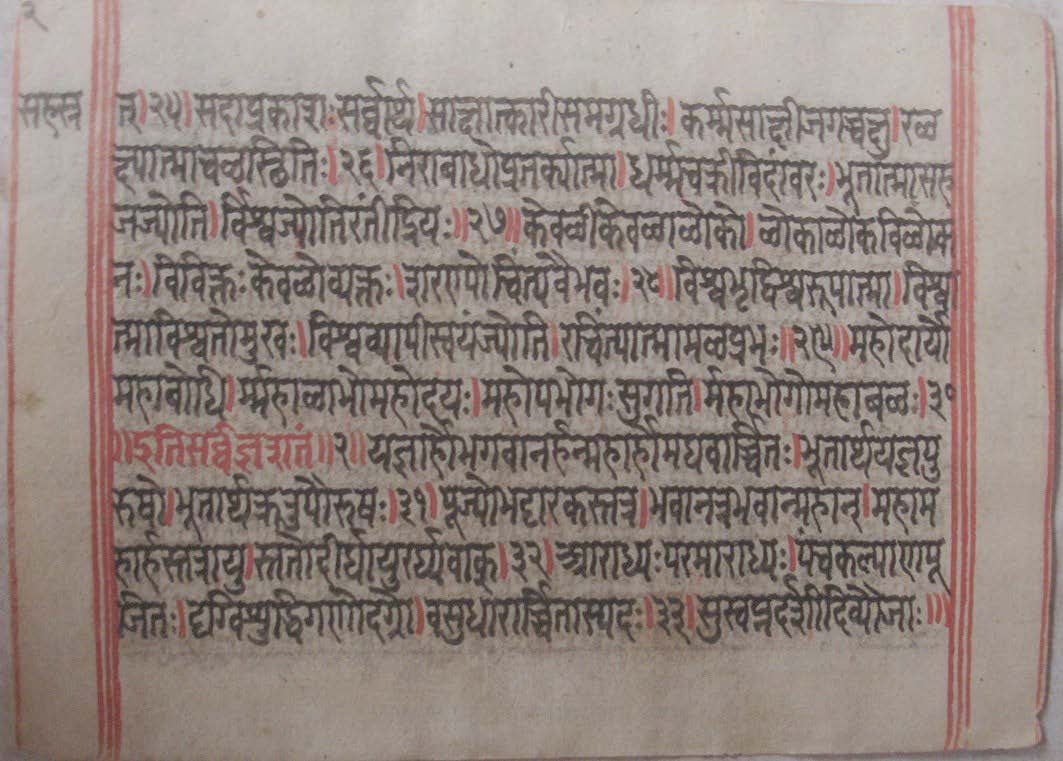 २
सहस्त्र
त्र।२५।सदाप्रकाशः सर्व्वार्थ।साक्षात्कारीसमग्रधीः।कर्म्मसाक्षीजगच्चक्षु।रळ
क्ष्यात्माचळस्थितिः।२६।निराबाधोप्रतर्क्यात्मा।धर्म्मचक्रीविदांवरः।भूतात्मासह
जज्योति।र्विश्वज्योतिरतींद्रियः॥२७॥केवळीकेवळाळोको।ळोकाळोकविळोक
नः।विविक्तः केवळोव्यक्तः।शरण्योचिंत्यवैभवः।२८।विश्वभृद्विश्वरूपात्मा।विश्वा
त्माविश्वतोमुखः।विश्वव्यापीस्वयंज्योति।रचिंत्यात्मामळप्रभः॥२९॥महोदार्यो
महाबोधि।र्म्महाळाभोमहोदयः।महोपभोगः सुगति।र्महाभोगोमहाबळः।३०
॥इतिसर्व्वज्ञशतं॥२॥यज्ञार्होभगवानर्हन्महार्होमघवार्च्चितः।भूतार्थयज्ञपु
रुषो।भूतार्थक्रतुपौरुषः।३१।पूज्योभट्टारकस्तत्र।भवानत्रभवान्महान्।महाम
हार्हस्तत्रायु।स्ततोदीर्घायुरर्घ्यवाक्।३२।आराध्यः परमाराध्यः।पंचकल्याणपू
जितः।दृग्विशुद्धिगणोदग्रो।वसुधारार्च्चितास्पदः।३३।सुस्वप्नदर्शीदिव्यौजाः॥